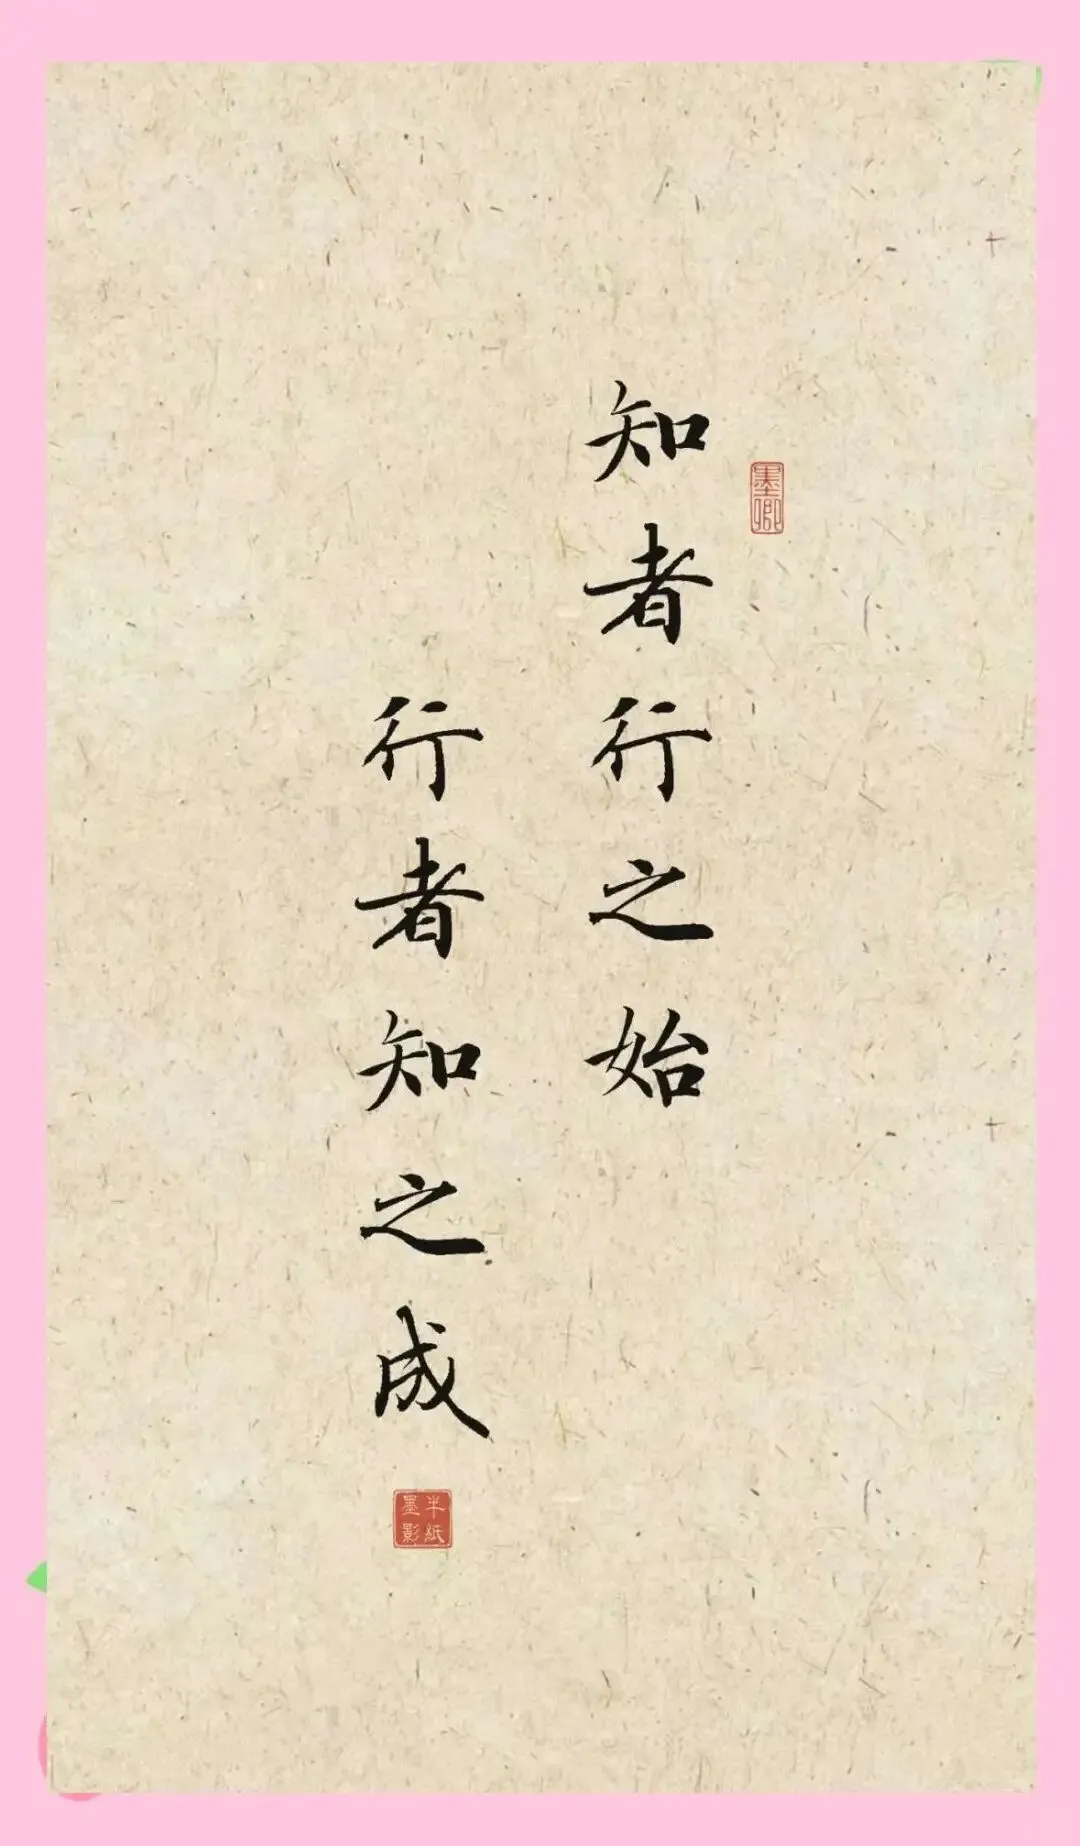 知者行之始
行者知之成
墨卿
半纸墨影